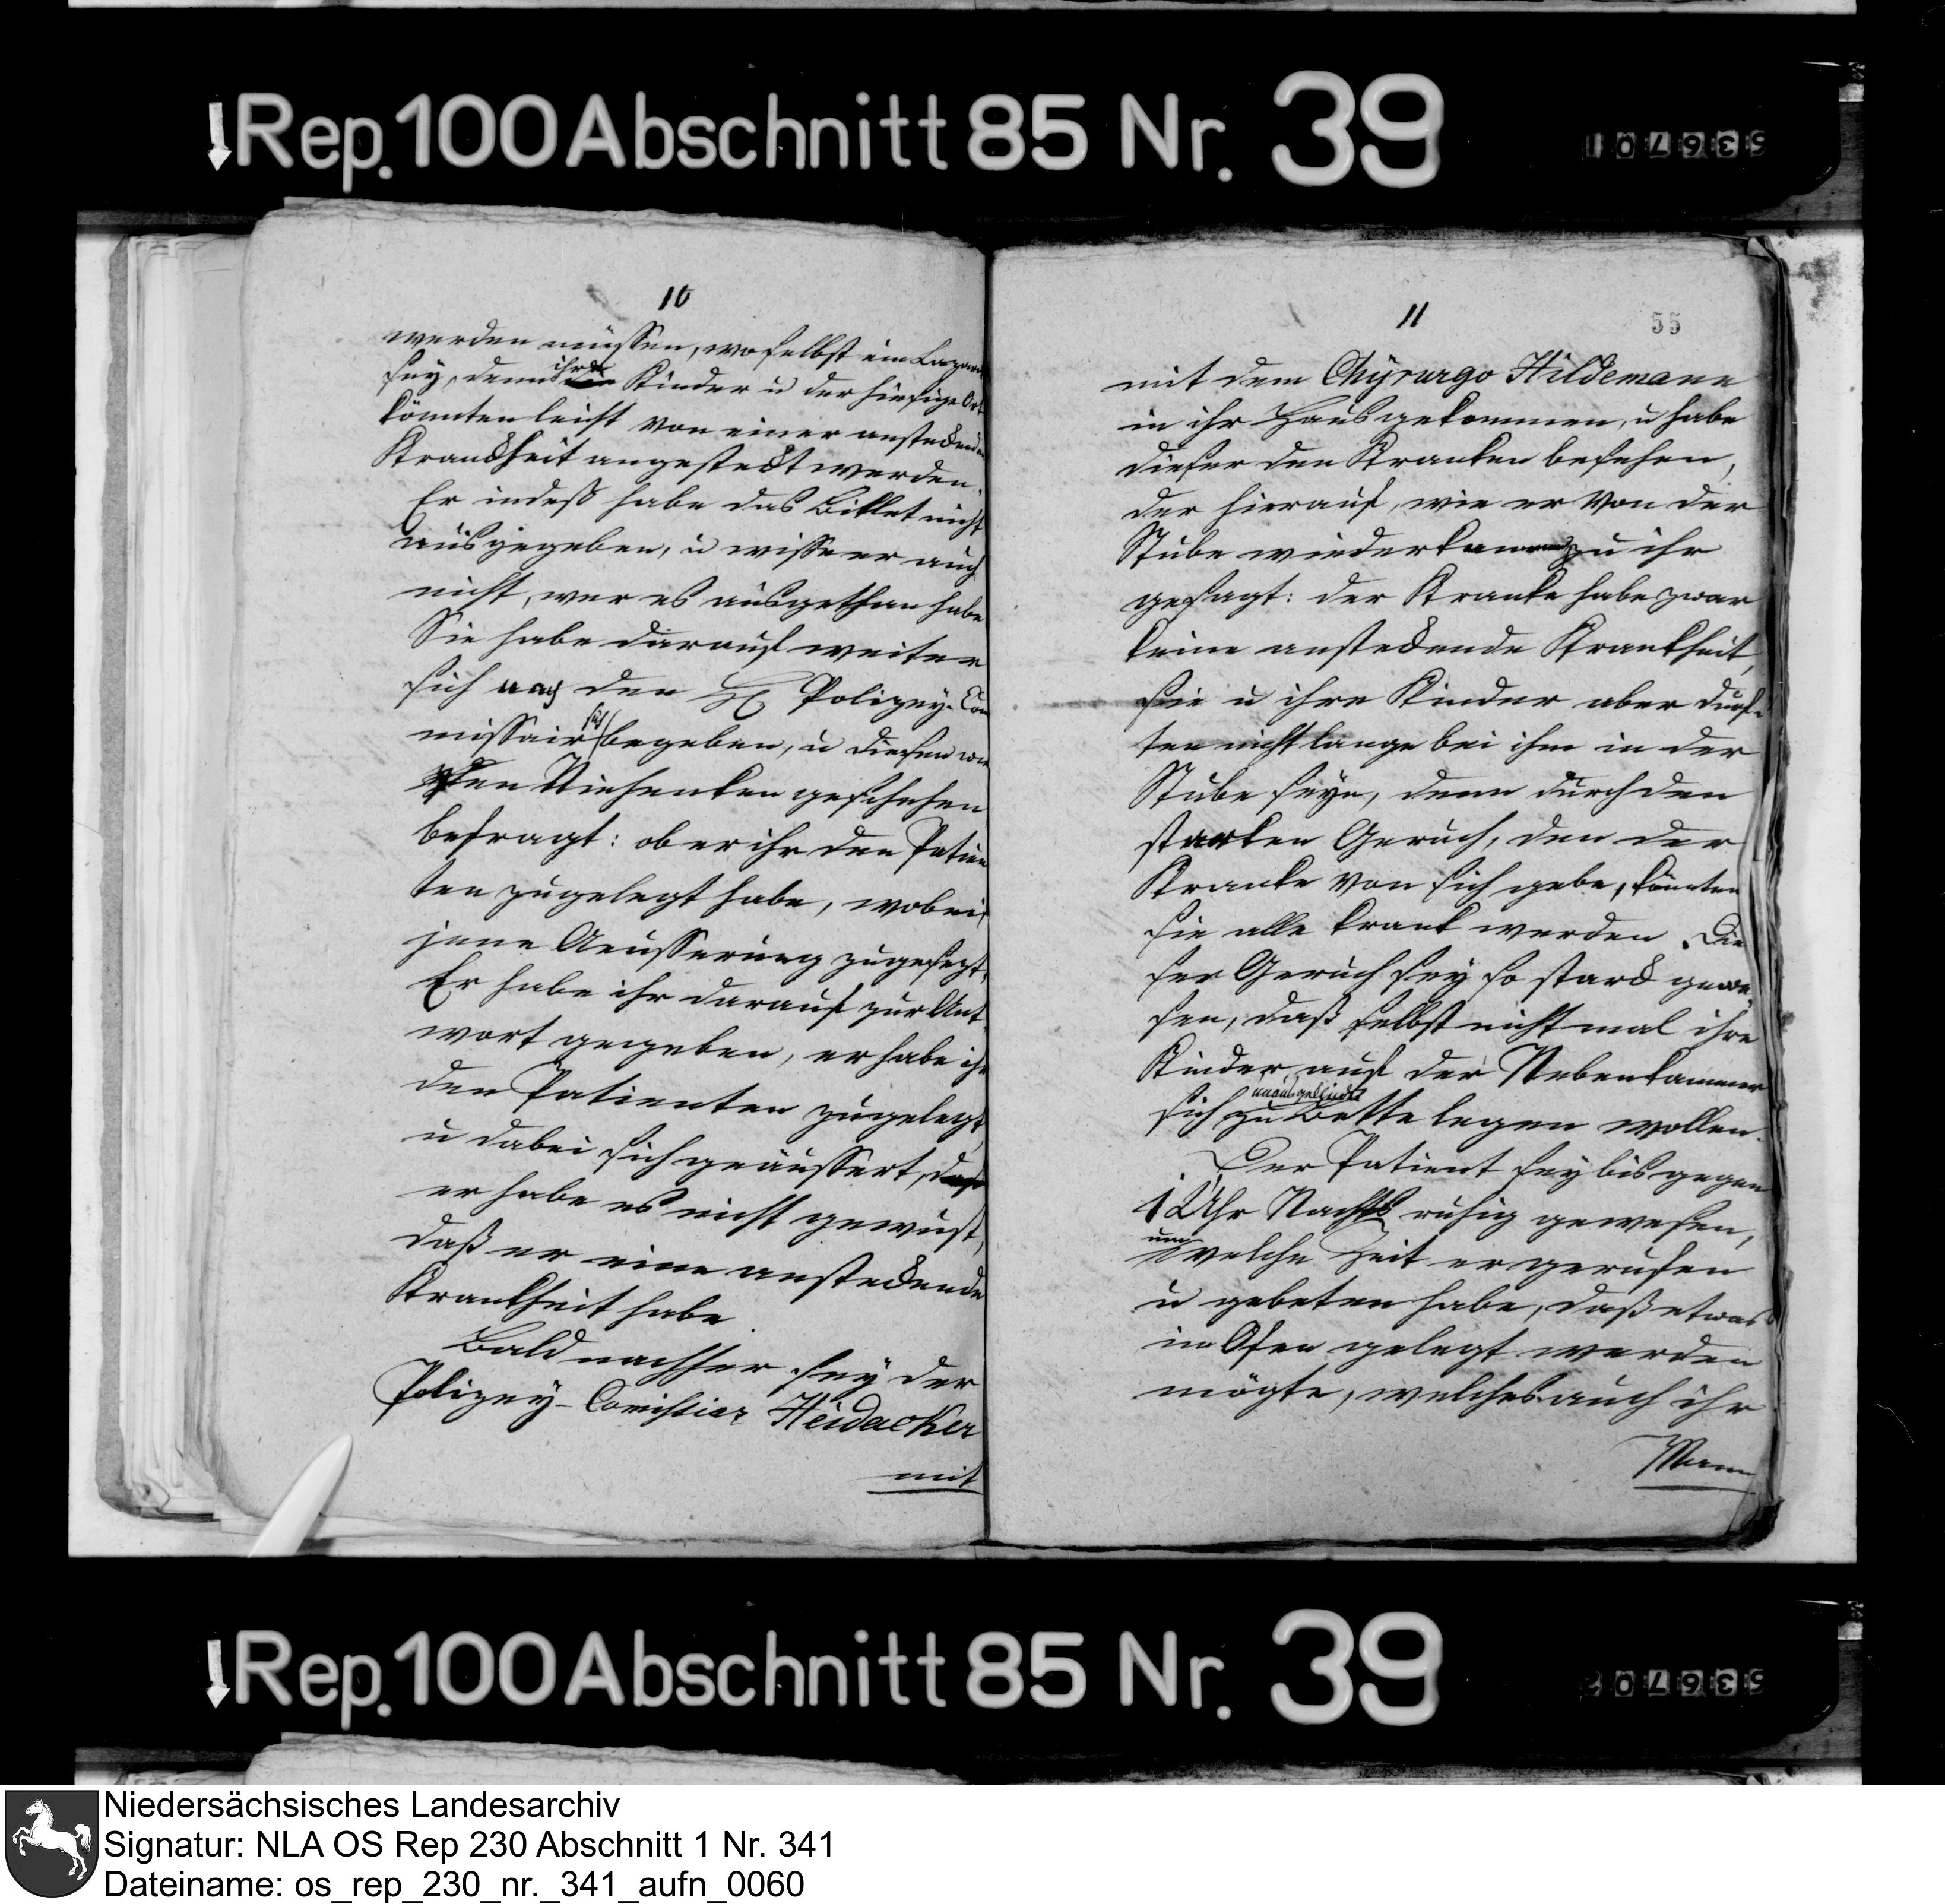 Rep. 100 Abschnitt 85 Nr. 39
53670 1
10
werden müssen, woselbst ein Lazaret
sey, denn ihre Kinder u der hiesige Ort
könnten leicht von einer ansteckenden
Kranckheit angesteckt werden.
Er indeß habe das Billet nicht
ausgegeben, u wisse er auch
nicht, wer es ausgethan habe
Sie habe darauf weiter
sich nach den H Polizey-Com
missair sich begeben, u diesen wie
den Niehenken geschehen
befragt: ob er ihr den Patien
ten zugelegt habe, wobei
jene Aeusserung zugesezt,
Er habe ihr darauf zur Ant
wort gegeben, er habe ihr
den Patienten zugelegt
u dabei sich geäussert,
er habe es nicht gewust,
daß er eine ansteckende
Krankheit habe
Bald nachher sey der
Polizey-Comissier Heidacker
mit
11
55
mit dem Chyrurgo Hildemann
in ihr Haus gekommen, u habe
dieser den Kranken besehen,
der hierauf, wie er von der
Stube wiederkam zu ihr
gesagt: der Kranke habe zwar
keine ansteckende Krankheit,
sie u ihre Kinder aber durf-
ten nicht lange bei ihm in der
Stube seyn, denn durch den
starken Geruch, den der
Kranke von sich gebe, könnten
sie alle krank werden. Die
ser Geruch sey so starck gewe
sen, daß selbst nicht mal ihre
Kinder auf der Nebenkammer
sich zu Bette legen wollen.
Der Patient sey bis gegen
1 Uhr Nachts ruhig gewesen,
um welche Zeit er gerufen
u gebeten habe, daß etwas
in Ofen gelegt werden
mögte, welches auch ihr
Mann
Rep. 100 Abschnitt 85 Nr. 39
53670 2
Niedersächsisches Landesarchiv
Signatur: NLA OS Rep 230 Abschnitt 1 Nr. 341
Dateiname: os_rep_230_nr._341_aufn_0060